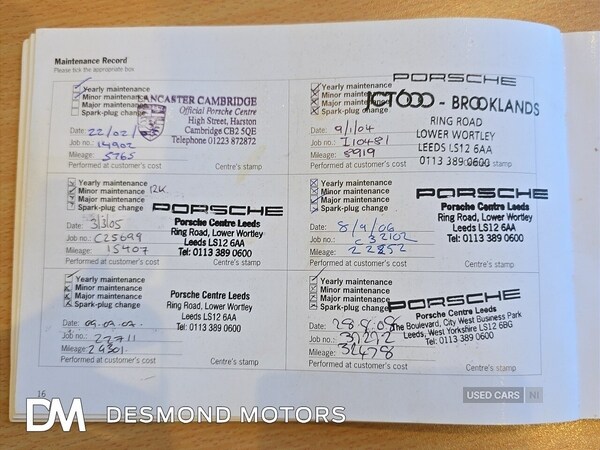 Maintenance Record
Please tick the appropriate box
Yearly maintenance
Minor maintenance
Major maintenance
Spark-plug change
LANCASTER CAMBRIDGE
Official Porsche Centre
High Street, Harston
Cambridge CB2 5QE
Telephone 01223 872872
Date: 22/02/
Job no.: 14902
Mileage: 5765
Performed at customer's cost
Centre's stamp
Yearly maintenance
Minor maintenance
Major maintenance
Spark-plug change
PORSCHE
JCT600 - BROOKLANDS
RING ROAD
LOWER WORTLEY
LEEDS LS12 6AA
0113 389 0600
Date: 9/1/04
Job no.: I10481
Mileage: 8919
Performed at customer's cost
Centre's stamp
Yearly maintenance
Minor maintenance 12K
Major maintenance
Spark-plug change
PORSCHE
Porsche Centre Leeds
Ring Road, Lower Wortley
Leeds LS12 6AA
Tel: 0113 389 0600
Date: 3/3/05
Job no.: C25699
Mileage: 15407
Performed at customer's cost
Centre's stamp
Yearly maintenance
Minor maintenance
Major maintenance
Spark-plug change
PORSCHE
Porsche Centre Leeds
Ring Road, Lower Wortley
Leeds LS12 6AA
Tel: 0113 389 0600
Date: 8/9/06
Job no.: C32102
Mileage: 22852
Performed at customer's cost
Centre's stamp
Yearly maintenance
Minor maintenance
Major maintenance
Spark-plug change
Porsche Centre Leeds
Ring Road, Lower Wortley
Leeds LS12 6AA
Tel: 0113 389 0600
Date: 09.07.
Job no.: 22711
Mileage: 29301
Performed at customer's cost
Centre's stamp
Yearly maintenance
Minor maintenance
Major maintenance
Spark-plug change
PORSCHE
Porsche Centre Leeds
The Boulevard, City West Business Park
Leeds, West Yorkshire LS12 6BG
Tel: 0113 389 0600
Date: 28.8.08
Job no.: 37272
Mileage: 32478
Performed at customer's cost
Centre's stamp
16
DM DESMOND MOTORS
USED CARS NI